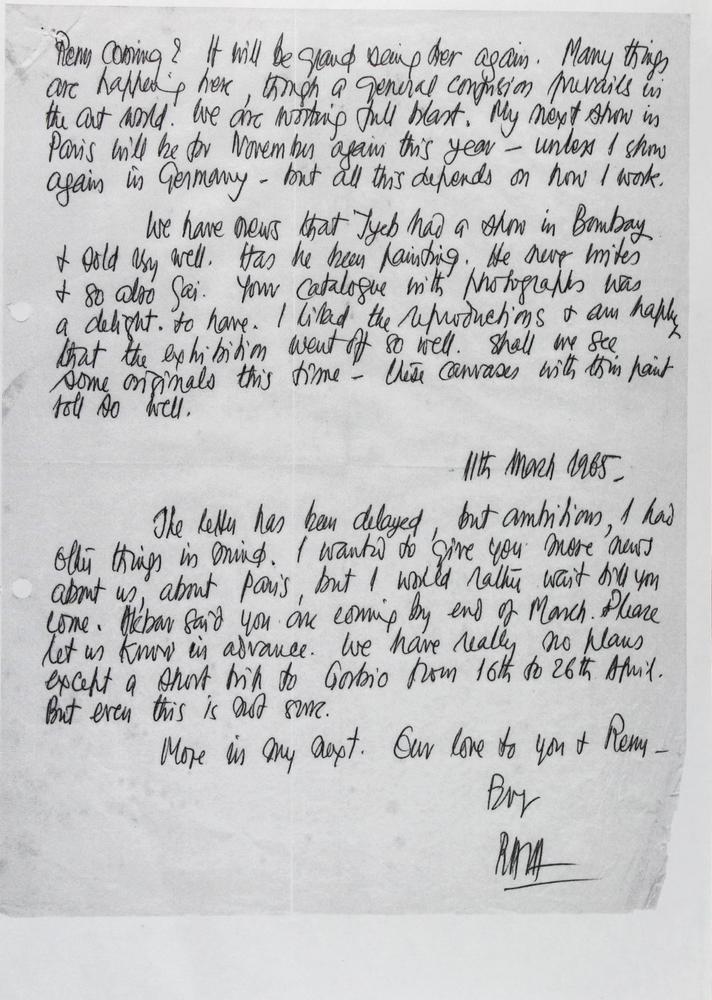 Renu coming? It will be grand seeing her again. Many things
are happening here, though a general confusion prevails in
the art world. We are working full blast. My next show in
Paris will be for November again this year – unless I show
again in Germany – but all this depends on how I work.
We have news that Tyeb had a show in Bombay
& sold very well. Has he been painting. He never writes
& so also Gai. Your catalogue with photographs was
a delight. to have. I liked the reproductions & am happy
that the exhibition went off so well. Shall we see
some originals this time – these canvases with thin paint
roll so well.
11th March 1965_
The letter has been delayed, but ambitious, I had
other things in mind. I wanted to give you more news
about us, about Paris, but I would rather wait till you
come. Akbar said you are coming by end of March. Please
let us know in advance. We have really no plans
except a short trip to Gorbio from 16th to 26th April.
But even this is not sure.
More in my next. Our love to you & Renu –
RAZA